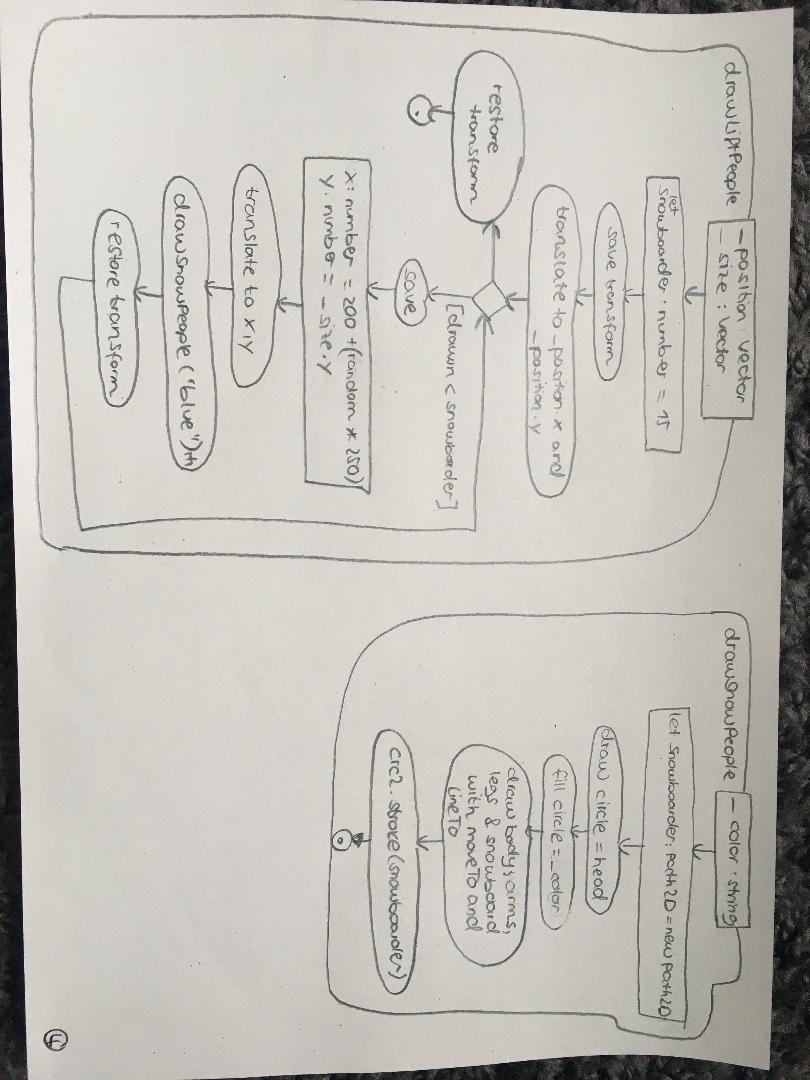 drawLiftPeople
_position: vector
_size: vector
let
snowboarder: number = 15
save transform
translate to _position.x and
_position.y
restore
transform
[drawn < snowboarder]
save
x: number = 200 + (random * 250)
y: number = _size.y
translate to x,y
drawSnowPeople ("blue")
restore transform
drawSnowPeople
_color: string
let snowboarder: path2D = new path2D
draw circle = head
fill circle = _color
draw body, arms,
legs & snowboard
with moveTo and
lineTo
crc2.stroke(snowboarder)
4